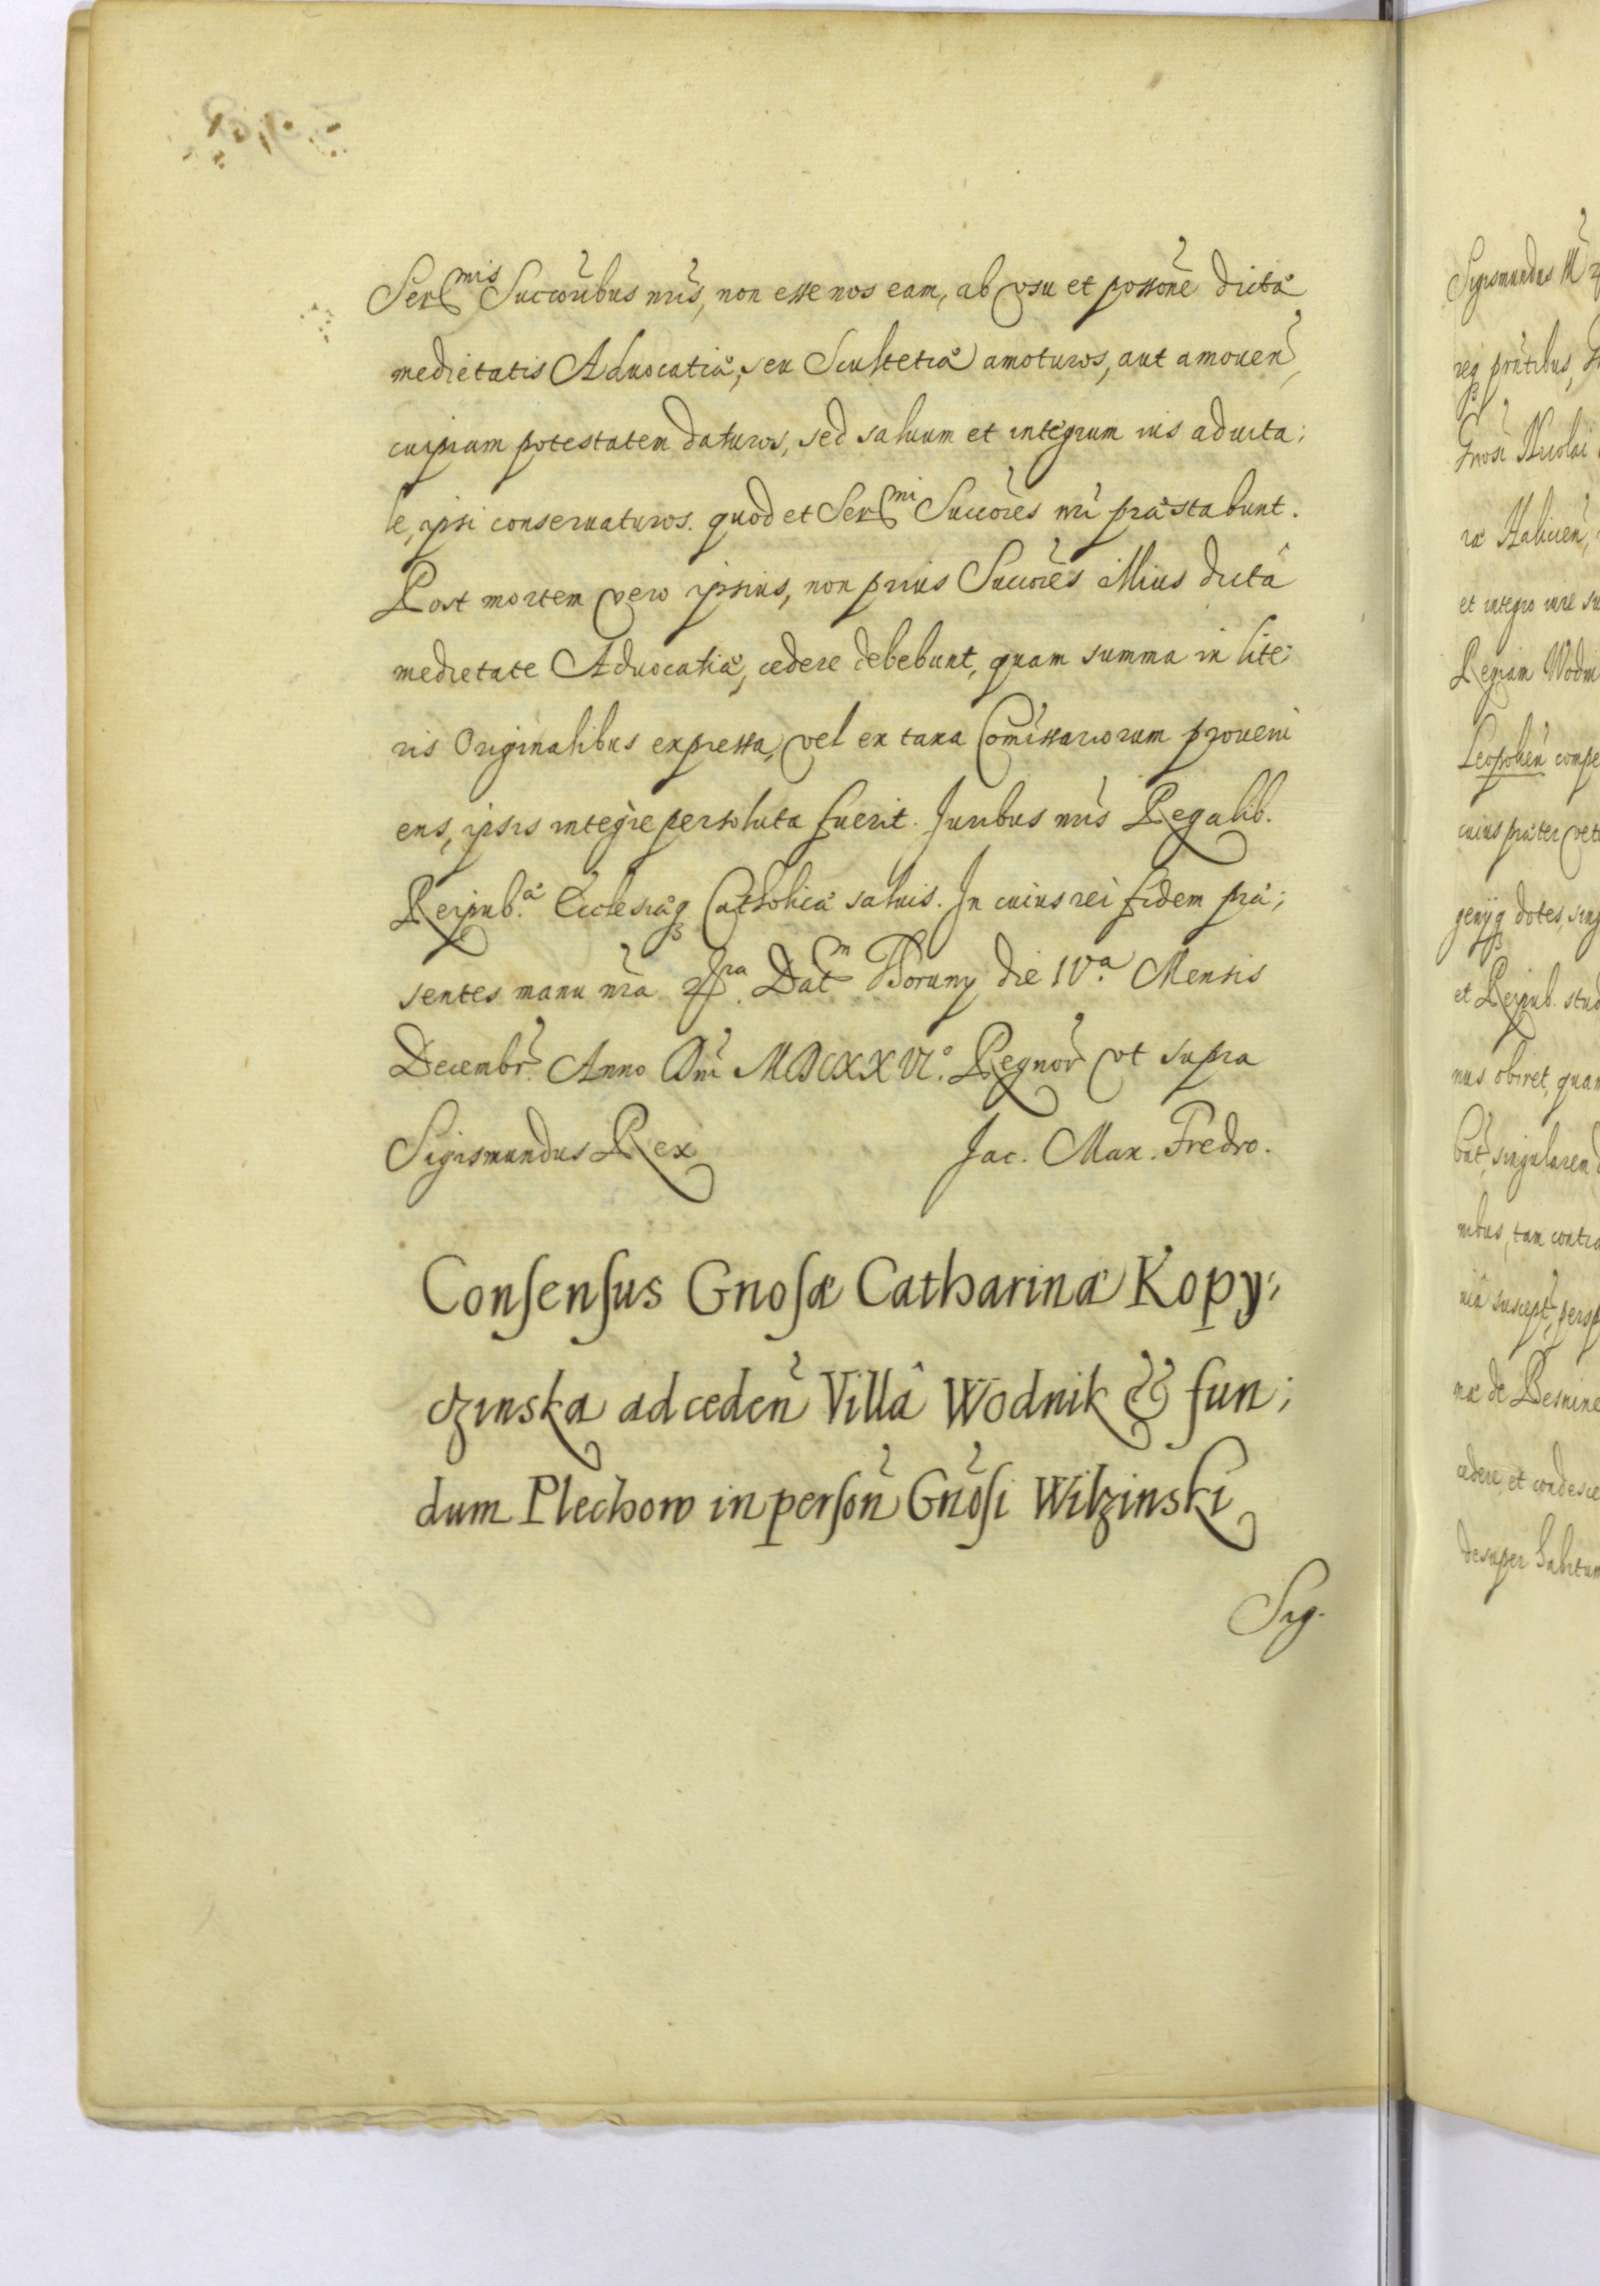 Ser^mis Succoribus nris, non esse nos eam, ab vsu et possone dictæ
medietatis Aduocatiæ, seu Scultetiæ amoturos, aut amouen̄,
cuipiam potestatem daturos, sed saluum et integrum ius aduita;
le, ipsi conseruaturos. quod et Ser^mi Succores nri præstabunt.
Post mortem vero ipsius, non prius Succores illius dictâ
medietate Aduocatiæ, cedere debebunt, quam summa in lite;
ris Originalibus expressa, vel ex taxa Comissariorum proueni
ens, ipsis integre persoluta fuerit. Juribus nris Regalib.
Reipub.æ Ecclesiæq Catholicæ saluis. In cuius rei fidem præ;
sentes manu nra Dat^m Thoruny die IV.a Mensis
Decembr. Anno Dni MDCXXVI.o Regnor vt supra
Sigismundus Rex Jac. Max. Fredro.
Consensus Gnosæ Catharinæ Kopy;
czinska ad ceden̄ Villâ Wodnik & fun;
dum Plechow in person̄ Gnōsi Wilzinski
Sig.
Sigismundus
prntibus,
Gnosi Nicolai
ræ Halicien,
et integro iure
Regiam Wodni
Leopolien compe
cuius præter vet
genijq dotes, sing
et Reipub. stud
nus obiret, quam
bat, singularem
nibus, tam contra
suscept, persp
næ de
cedere, et condesce
desuper habitam